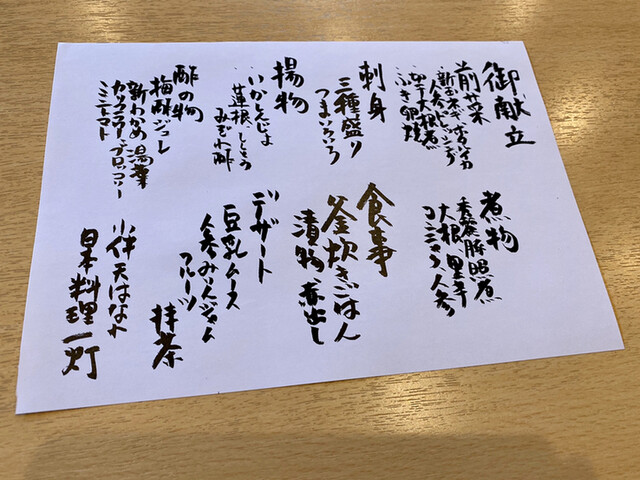 御献立
前菜
新玉ネギ ホタルイカ
人参ドレッシング
切干大根煮
ふき 卵焼
刺身
三種盛り
つまいろいろ
揚物
いかしんじょ
蓮根、ししとう
みぞれ酢
酢の物
梅酢ジュレ
新わかめ 湯葉
カリフラワー、ブロッコリー
ミニトマト
煮物
大根、里芋
コンニャク、人参
食事
釜炊きごはん
漬物 赤出し
デザート
豆乳ムース
人参みりんジャム
フルーツ
抹茶
小伴天はなれ
日本料理一灯